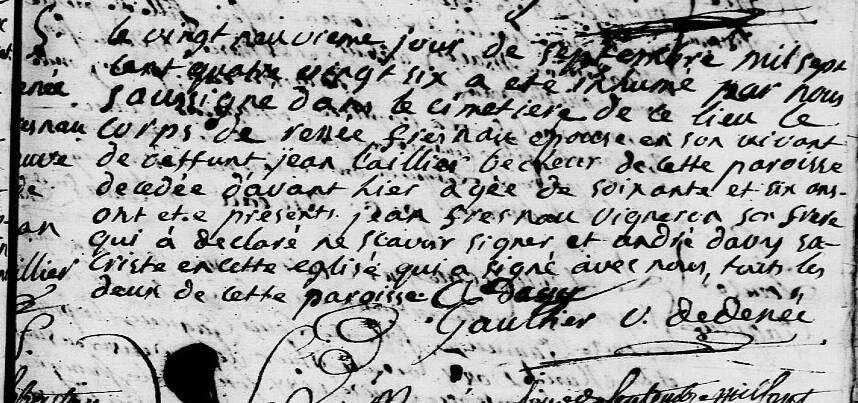 S.
le vingt neuvieme jour de septembre mil sept
cent quatre vingt six a eté inhumé par nous
enée
soussigné dans le cimetiere de ce lieu le
esnau
corps de renée fresnau epouse en son vivant
euve
de deffunt jean Caillier becheur de cette paroisse
de
decedée d'avant hier agée de soixante et six ans
ean
ont eté presents jean fresnau vigneron son frere
qui a declaré ne scavoir signer et andré davy sa-
illier
criste en cette eglise qui a signé avec nous, touts les
deux de cette paroisse A Davy
Gaulthier v. de denée
S.